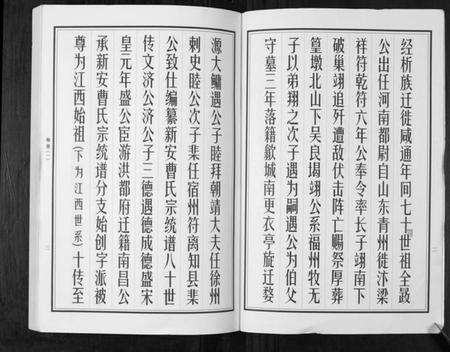 经析族迁徙咸通年间七十世祖全晸
公出任河南都尉自山东青州徙汴梁
祥符乾符六年公奉令率长子翊南下
破巢翊追歼遭敌伏击阵亡赐祭厚葬
篁墩北山下吴良堨翊公系福州牧无
子以弟翔之次子遇为嗣遇公为伯父
守墓三年落籍歙城南更衣亭旋迁婺
源大鳙遇公子睦拜朝靖大夫任徐州
刺史睦公次子棐任宿州符离知县棐
公致仕编纂新安曹氏宗统谱八十世
传文济公济公子三德遇德成德盛宋
皇元年盛公宦游洪都府迁籍南昌公
承新安曹氏宗统谱分支始创字派被
尊为江西始祖(下为江西世系)十传至